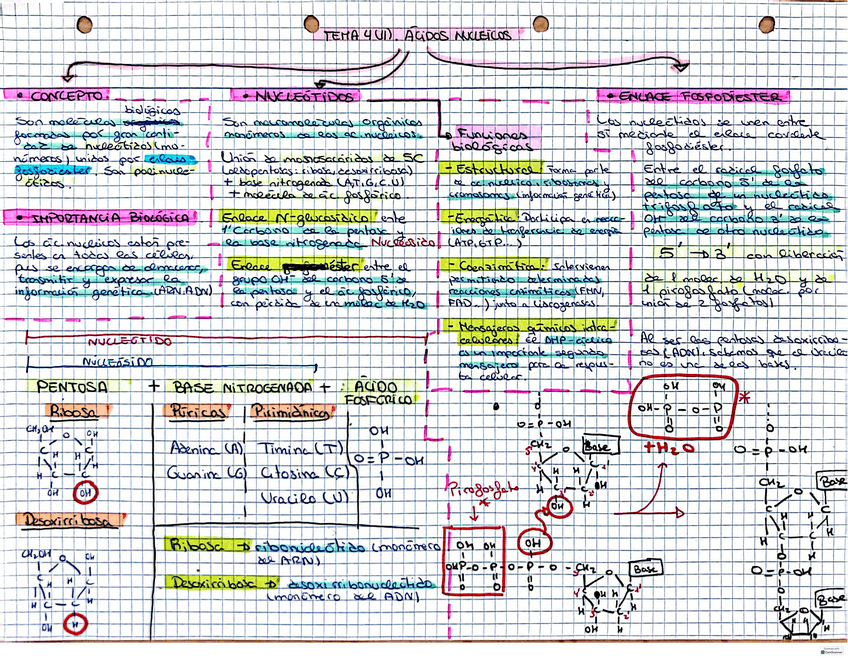 TEMA 4(II). ÁCIDOS NUCLEICOS
• CONCEPTO
biológicas
Son moléculas
formadas por gran canti-
dad de nucleótidos (mo-
nómeros) unidos por enlace
fosfodiéster. Son polinucle-
ótidos.
• IMPORTANCIA BIOLÓGICA
Los ác. nucleicos están pre-
sentes en todas las células,
pues se encargan de almacenar,
transmitir y expresar la
información genética. (ARN, ADN)
• NUCLEÓTIDOS
Son macromoléculas orgánicas
monómeros de los ac. nucleicos.
Unión de monosacáridos de 5C
(aldopentosas: ribosa, desoxirribosa)
+ base nitrogenada (A,T,G,C,U)
+ molécula de ác. fosfórico
Enlace N-glucosídico ente
1' Carbono de la pentosa y
la base nitrogenada Nucleósido
Enlace éster entre el
grupo OH del carbono 5' de
la pentosa y el ác. fosfórico,
con pérdida de un molec de H2O
Funciones
biológicas
- Estructural: Forma parte
de ac. nucleico, ribosomas y
cromosomas (información genética)
- Energética: Participa en reacc-
iones de tranferencia de energía
(ATP, GTP...)
- Coenzimática: Intervienen
permitiendo determinadas
reacciones enzimáticas (FMN,
FAD...) junto a
- Mensajeros químicos intra-
celulares: el AMP-cíclico
es un importante segundo
mensajero para la respues-
ta celular.
• ENLACE FOSFODIÉSTER
Los nucleótidos se unen entre
sí mediante el enlace covalente
fosfodiéster.
Entre el radical fosfato
del carbono 5' de la
pentosa de un nucleótido
trifosfato y el radical
OH del carbono 3' de la
pentosa de otro nucleótido
5' → 3' con liberación
de 1 molec de H2O y de
1 pirofosfato (molec. por
unión de 2 fosfatos)
Al ser las pentosas desoxirribo-
sas (ADN). Sabemos que el
no es de las bases.
NUCLEÓTIDO
NUCLEÓSIDO
PENTOSA + BASE NITROGENADA + ÁCIDO
FOSFÓRICO
Ribosa
CH2OH O OH
C C
H H H H
C C
OH OH
Desoxirribosa
CH2OH O OH
C C
H H H H
C C
OH H
Púricas
Adenina (A)
Guanina (G)
Pirimidínicas
Timina (T)
Citosina (C)
Uracilo (U)
OH
O=P-OH
OH
Ribosa → ribonucleótido (monómero
del ARN)
Desoxirribosa → desoxirribonucleótido
(monómero del ADN)
O=P-OH
O
CH2
Base
OH
Pirofosfato
*
OH OH OH
OHP-O-P-O-P-O-CH2
O O O
Base
OH H
OH OH
OH-P-O-P
O O
*
+H2O
O=P-OH
O
CH2
Base
O
O=P-OH
O
CH2
Base